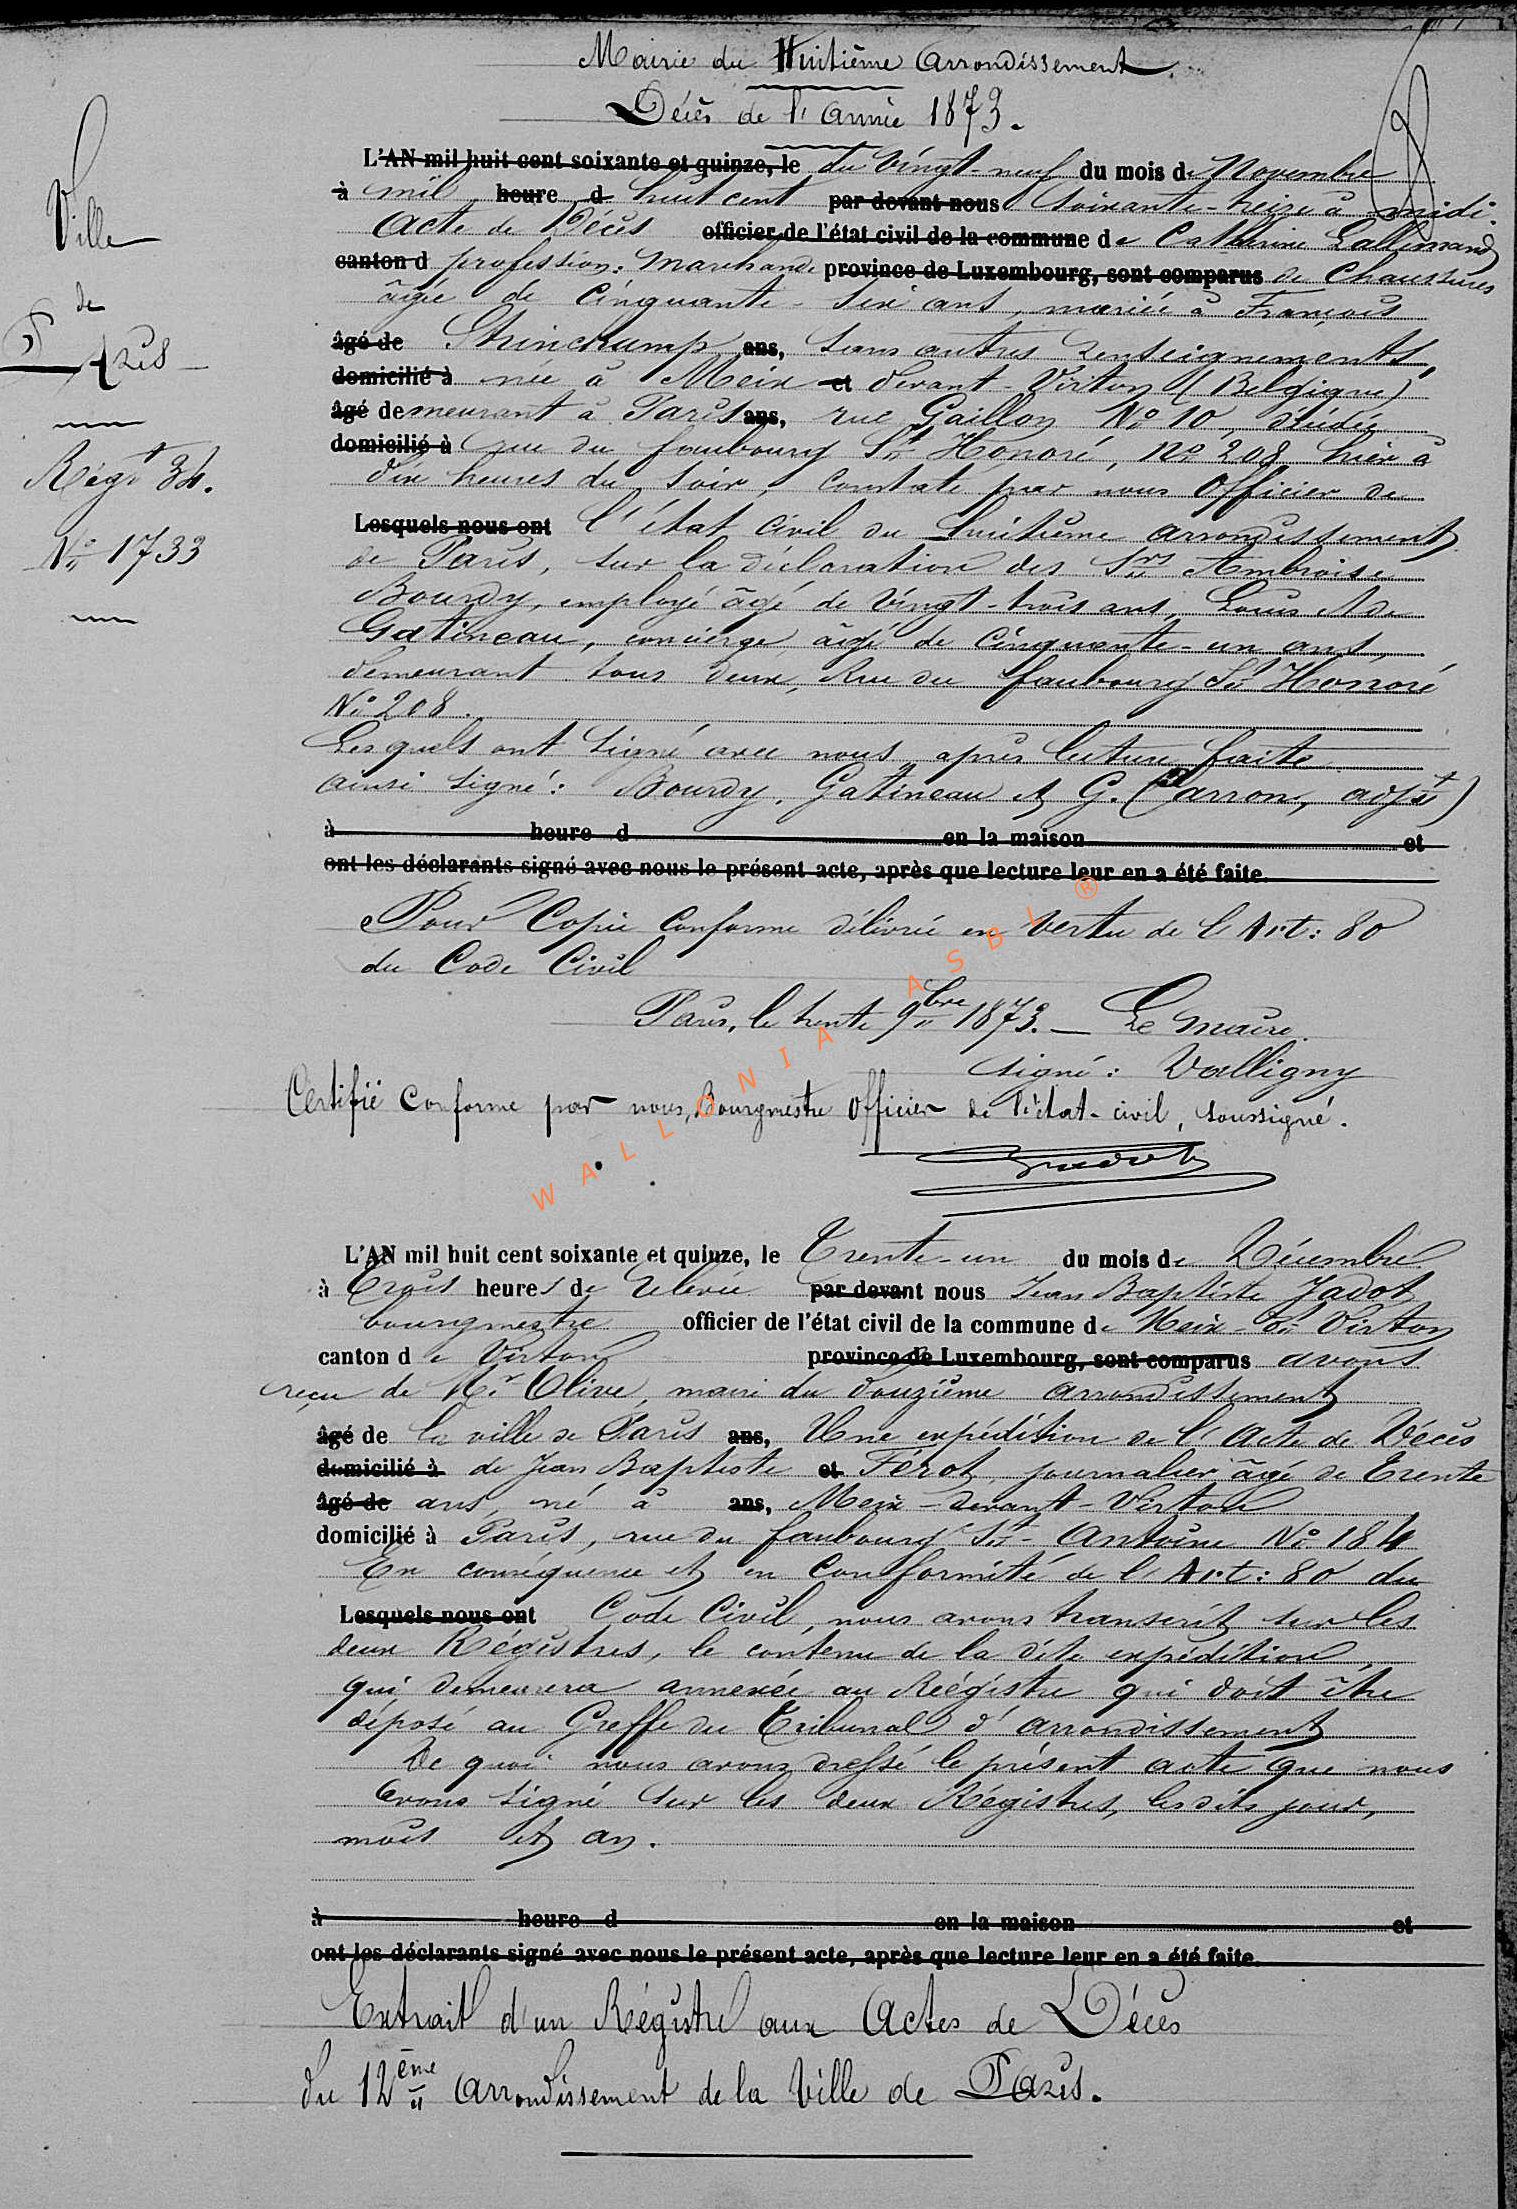 Mairie du Huitième Arrondissement
Décès de l'Année 1873.
Ville
de
Paris
Régt 34.
No 1733
L'AN mil huit cent soixante et quinze, le du Vingt-neuf du mois de Novembre
à mil heure d huit cent par devant nous soixante-treize à midi.
Acte de Décès officier de l'état civil de la commune de Catherine Lallemand
canton d profession: Marchande province de Luxembourg, sont comparus de Chaussures
âgée de Cinquante-six ans, mariée à François
âgé de Strinchamp ans, sans autres renseignements
domicilié à née à Meix et devant-Virton (Belgique)
âgé demeurant à Paris ans, rue Gaillon No 10, décédée
domicilié à rue du faubourg St Honoré, No 208 hier à
dix heures du soir, constaté par nous Officier de
Lesquels nous ont l'état civil du huitième arrondissement
de Paris, sur la déclaration des Srs Ambroise
Bourdy, employé âgé de Vingt-trois ans, Louis
Gatineau, concierge âgé de Cinquante-un ans,
demeurant tous deux, Rue du faubourg St Honoré
No 208.
Lesquels ont signé avec nous après lecture faite
ainsi signé: Bourdy, Gatineau et G. Carron, adjt)
à heure d en la maison et
ont les déclarants signé avec nous le présent acte, après que lecture leur en a été faite.
Pour Copie Conforme délivrée en Vertu de l'Art: 80
du Code Civil
Paris, le trente 9bre 1873. — Le Maire
signé: Valligny
Certifié Conforme par nous, Bourgmestre Officier de l'état-civil, soussigné.
WALLONIA ASBL ®
L'AN mil huit cent soixante et quinze, le Trente-un du mois de Décembre
à Trois heures de Relevée par devant nous Jean Baptiste Jadot
bourgmestre officier de l'état civil de la commune de Meix-dt Virton
canton de Virton province de Luxembourg, sont comparus avons
reçu de Mr Olive, maire du douzième arrondissement
âgé de la ville de Paris ans, Une expédition de l'Acte de Décès
domicilié à de Jean Baptiste et Férot, journalier âgé de Trente
âgé de ans, né à ans, Meix-devant-Virton
domicilié à Paris, rue du faubourg St-Antoine No 184
En conséquence et en Conformité de l'Art: 80 du
Lesquels nous ont Code Civil, nous avons transcrit sur les
deux Régistres, le contenu de la dite expédition,
qui demeurera annexée au Régistre qui doit être
déposé au Greffe du Tribunal d'arrondissement
De quoi nous avons dressé le présent acte que nous
avons signé sur les deux Régistres, les dits jour,
mois et an.
à heure d en la maison et
ont les déclarants signé avec nous le présent acte, après que lecture leur en a été faite.
Extrait d'un Régistre aux Actes de Décès
du 12ème arrondissement de la Ville de Paris.